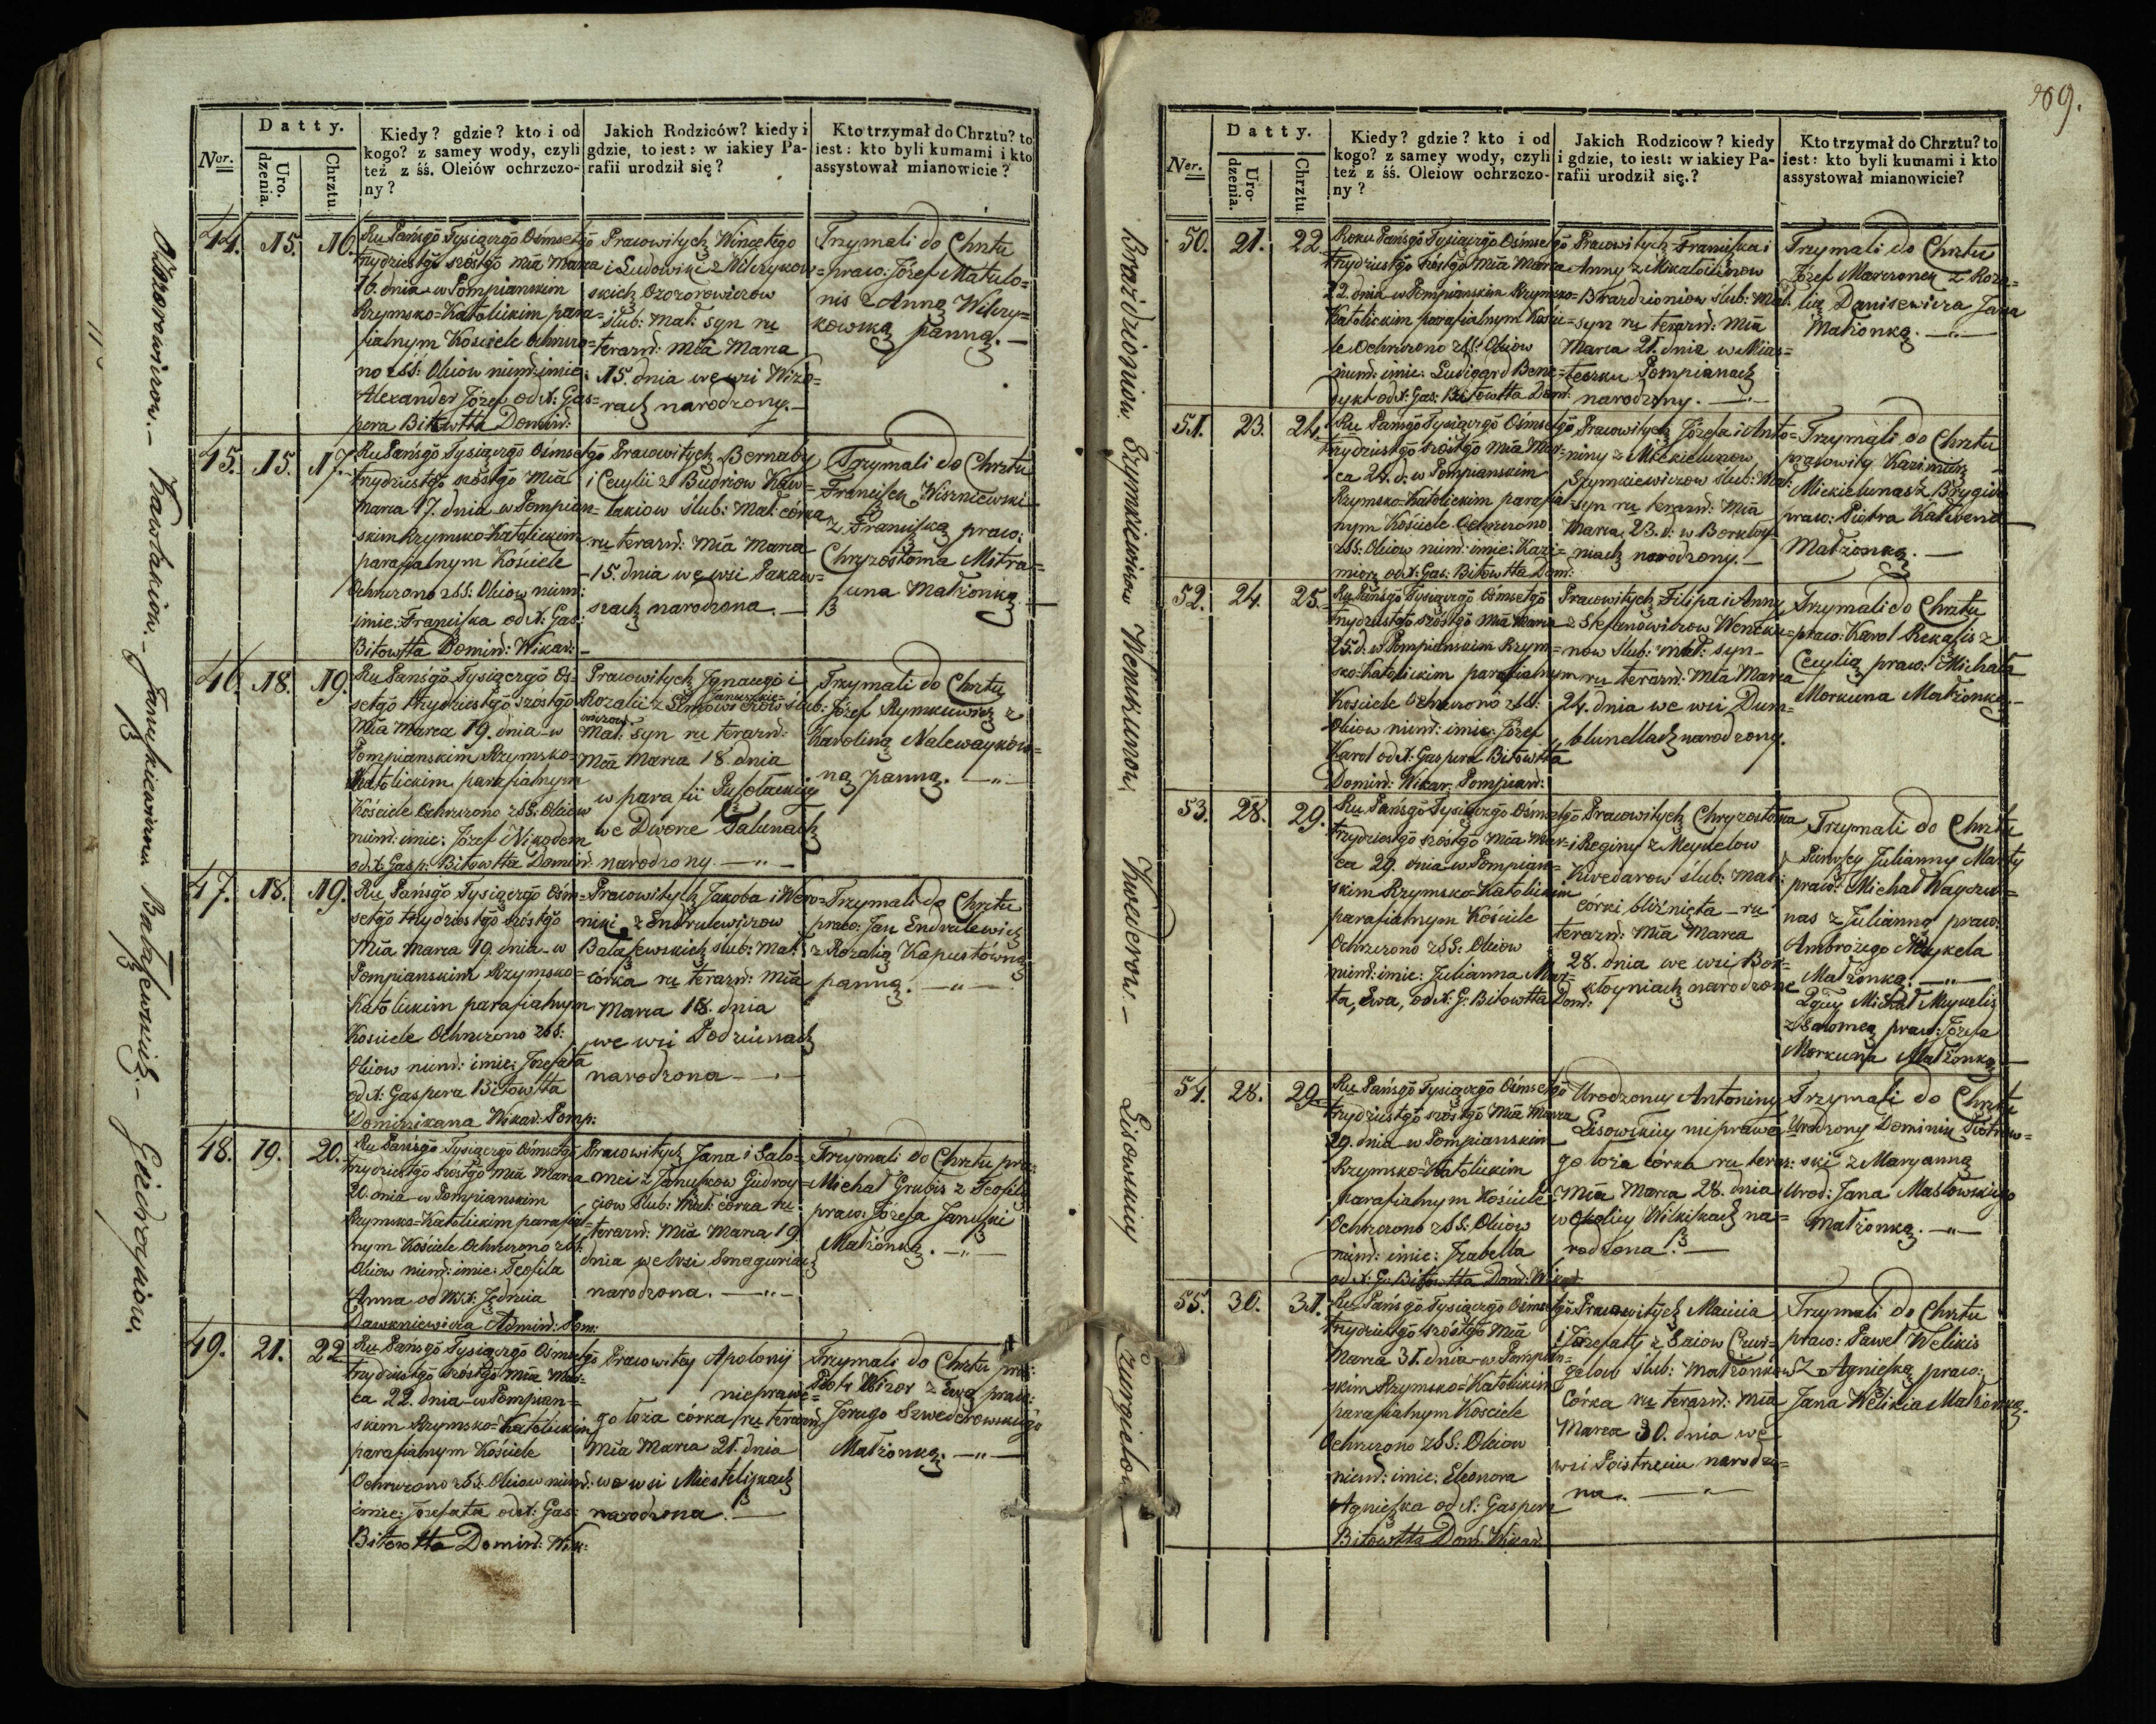 Datty.
Ner.
Uro.
dzenia.
Chrztu
Kiedy? gdzie? kto i od
kogo? z samey wody, czyli
też z śś. Oleiów ochrzczo-
ny?
Jakich Rodziców? kiedy i
gdzie, to iest: w iakiey Pa-
rafii urodził się?
Kto trzymał do Chrztu? to
iest: kto byli kumami i kto
assystował mianowicie?
44. 15. 16.
Ru Pańsgō Tysiącgō Ośmsetgō
trzydziestgō szóstgō Mīa Marca
16. dnia w Pompianskim
Rzymsko=Katolickim para=
fialnym Kościele Ochrzczo=
no z SS: Oleiow niem: imie:
Alexander Józef od X: Gas=
pera Bitowtta Domin:
Pracowitych Wincętego
i Ludowiki z Wilczykow=
skich Ozorowiczow
Slub: Mał: syn ru
terazn: Mīa Marca
15. dnia we wsi Wizo=
rach narodzony.—
Trzymali do Chrztu
=praco: Józef Matulo=
nis z Anną Wilczy=
kowską panną.—
45. 15. 17.
Ru Pańsgō Tysiącgō Ośmsetgō
trzydziestgō szóstgō Mīa
Marca 17. dnia w Pompian=
skim Rzymsko-Katolickim
parafialnym Kościele
Ochrzczono z SS: Oleiow niem:
imie: Franciſzka od X: Gas:
Bitowtta Domin: Wikar:—
Pracowitych Bernaby
i Cecylii z Budriow Kaw=
łakiow Slub: Mał: córka
ru terazn: Mīa Marca
15. dnia we wsi Pakaw=
szach narodzona.—
Trzymali do Chrztu
Franciſzek Wiszniewski
z Franciſzką praco:
Chryzostoma Mitra=
juna Małżonką.—
46. 18. 19.
Ru Pańsgō Tysiącgō Oś=
setgō trzydziestgō szóstgō
Mīa Marca 19. dnia w
Pompianskim Rzymsko=
Katolickim parafialnym
Kościele Ochrzczono z SS: Oleiow
niem: imie: Józef Nikodem
od X: Gasp: Bitowtta Domin:
Pracowitych Ignacego i
Rozalii z Simowiczow Januszkie=
wiczow ślub:
Mał: syn ru terazn:
Mīa Marca 18. dnia
w parafii
we Dworze Talunach
narodzony.—„—
Trzymali do Chrztu
Józef Rymkiewicz z
Karoliną Nalewayków=
ną panną.—„—
47. 18. 19.
Ru Pańsgō Tysiącgō Ośm=
setgō trzydziestgō szóstgō
Mīa Marca 19. dnia w
Pompianskim Rzymsko=
Katolickim parafialnym
Kościele Ochrzczono z SS:
Oleiow niem: imie: Jozefata
od X: Gaspera Bitowtta
Dominikana Wikar: Pomp:
Pracowitych Jakoba i Wero=
niki z Endrulewiczow
Bałaſzewskich ślub: Mał:
córka ru terazn: Mīa
Marca 18. dnia
we wsi Podziunach
narodzona—„—
Trzymali do Chrztu
praco: Jan Endrulewicz
z Rozalią Kapustówną
panną.—„—
48. 19. 20.
Ru Pańsgō Tysiącgō Ośmsetgō
trzydziestgō szóstgō Mīa Marca
20. dnia w Pompianskim
Rzymsko=Katolickim parafial=
nym Kościele Ochrzczono z SS:
Oleiow niem: imie: Teofila
Anna od X: Jędrzeia
Dawkniewicza Admin: Pom:
Pracowitych Jana i Salo=
mei z Januſzkow Giedroy=
ciow Slub: Mał: córka ru
terazn: Mīa Marca 19.
dnia we wsi Smaguriach
narodzona.—„—
Trzymali do Chrztu pra:
Michał Grubis z Teofilą
praco: Józefa Januſzki
Małżonką.—„—
49. 21. 22
Ru Pańsgō Tysiącgō Ośmsetgō
trzydziestgō szóstgō Mīa Mar=
ca 22. dnia w Pompian=
skim Rzymsko=Katolickim
parafialnym Kościele
Ochrzczono z SS: Oleiow niem:
imie: Jozefata od X: Gas:
Bitowtta Domin: Wik:
Pracowitey Apolonij
nieprawe=
go łoża córka ru terazn:
Mīa Marca 21. dnia
we wsi Miesteliszkach
narodzona.—
Trzymali do Chrztu pra:
Piotr Wizor z Ewą praco:
Jerzego Szwederowskiego
Małżonką.—„—
Ożorowiczow.— Kawłakiow.— Januſzkiewiczow. Bałaſzewskich.— Giedroyciow.
209.
Datty.
Ner.
Uro-
dzenia.
Chrztu
Kiedy? gdzie? kto i od
kogo? z samey wody, czyli
też z śś. Oleiow ochrzczo-
ny?
Jakich Rodzicow? kiedy
i gdzie, to iest: w iakiey Pa-
rafii urodził się.?
Kto trzymał do Chrztu? to
iest: kto byli kumami i kto
assystował mianowicie?
50. 21. 22.
Roku Pańsgō Tysiącgō Ośmsetgō
trzydziestgō szóstgō Mīa Marca
22. dnia w Pompianskim Rzymsko=
Katolickim parafialnym Koście=
le Ochrzczono z SS: Oleiow
niem: imie: Ludigard Bene=
dykt od X: Gas: Bitowtta Dom:
Pracowitych Franciſzka i
Anny z Mikałoiunow
Brazdzioniow ślub: Mał:
syn ru terazn: Mīa
Marca 21. dnia w Mias=
teczku Pompianach
narodzony.—„—
Trzymali do Chrztu
Józef Marconek z Roza=
lią Danisewicza Jana
Małżonką.—„—
51. 23. 24.
Ru Pańsgō Tysiącgō Ośmsetgō
trzydziestgō szóstgō Mīa Mar=
ca 24. d: w Pompianskim
Rzymsko-Katolickim parafial=
nym Kościele Ochrzczono
z SS: Oleiow niem: imie: Kazi=
mierz od X: Gas: Bitowtta Dom:
Pracowitych Józefa i Anto=
niny z Mickielunow
Szymkiewiczow ślub: Mał:
syn ru terazn: Mīa
Marca 23. d: w Borkłoy=
niach narodzony.—
Trzymali do Chrztu
pracowity Kazimierz
Mickielunas z Brygidą
praco: Piotra Katibena
Małżonką.—
52. 24. 25.
Ru Pańsgō Tysiącgō Ośmsetgō
trzydziestgō szóstgō Mīa Marca
25. d: w Pompianskim Rzym=
sko-Katolickim parafialnym
Kościele Ochrzczono z SS:
Oleiow niem: imie: Józef
Karol od X: Gaspera Bitowtta
Domin: Wikar: Pompian:
Pracowitych Filipa i Anny
z Stefanowiczow Wenckie=
now Slub: Mał: syn
ru terazn: Mīa Marca
24. dnia we wsi Dum=
blunellach narodzony.
Trzymali do Chrztu
praco: Karol Rekaſzis z
Cecylią praco: Michała
Morkuna Małżonką.—
53. 28. 29.
Ru Pańsgō Tysiącgō Ośmsetgō
trzydziestgō szóstgō Mīa Mar=
ca 29. dnia w Pompian=
skim Rzymsko=Katolickim
parafialnym Kościele
Ochrzczono z SS: Oleiow
niem: imie: Julianna Mar=
ta, Ewa, od X: G: Bitowtta Dom:
Pracowitych Chryzostoma
i Reginy z Meykelow
Kwedarow ślub: Mał:
corki bliźnięta—ru
terazn: Mīa Marca
28. dnia we wsi Bor=
kłoyniach narodzone
Trzymali do Chrztu
Pierwſzey Julianny Marty
praco: Michał Wayczu=
nas z Julianną praco:
Ambrożego Meykela
Małżonką.—„—
2giey Michał Meykelis
z Salomeą praco: Józefa
Morkuna Małżonką.—
54. 28. 29.
Ru Pańsgō Tysiącgō Ośmsetgō
trzydziestgō szóstgō Mīa Marca
29. dnia w Pompianskim
Rzymsko=Katolickim
parafialnym Kościele
Ochrzczono z SS: Oleiow
niem: imie: Izabella
od X: G: Bitowtta Dom: Wikar:
Urodzoney Antoniny
Lisowskiey nieprawe=
go łoża córka ru teraz:
Mīa Marca 28. dnia
w Okolicy Wilkiſzkach na=
rodzona.—
Trzymali do Chrztu
Urodzony Dominik Piotrow=
ski z Maryanną
Urod: Jana Masłowskiego
Małżonką.—„—
55. 30. 31.
Ru Pańsgō Tysiącgō Ośmsetgō
trzydziestgō szóstgō Mīa
Marca 31. dnia w Pompian=
skim Rzymsko=Katolickim
parafialnym Kościele
Ochrzczono z SS: Oleiow
niem: imie: Eleonora
Agnieſzka od X: Gaspera
Bitowtta Dom: Wikar:
Pracowitych Macieia
i Jozefaty z Saiow Czur=
gelow ślub: Małżonkow
Córka ru terazn: Mīa
Marca 30. dnia we
wsi Poistreciu narodzo=
na.—„—
Trzymali do Chrztu
praco: Paweł Welikis
z Agnieſzką praco:
Jana Welikia Małżonką.
Brazdzioniow. Szymkiewiczow Wenckunow. Kwedarow.— Lisowskiey Czurgielow.—